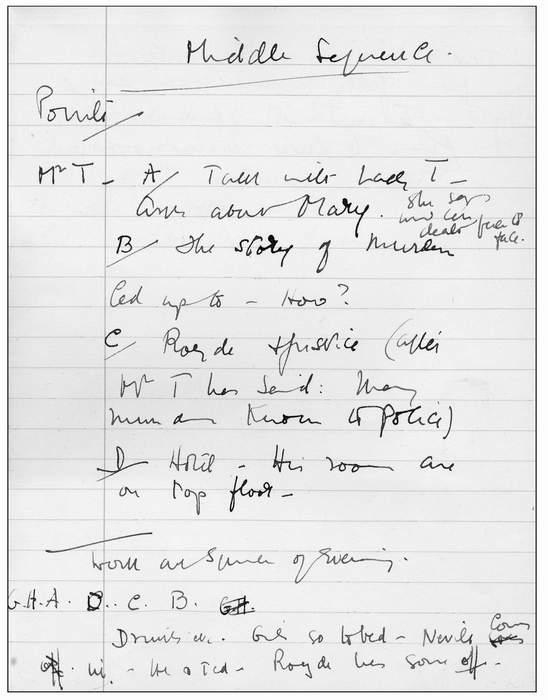 Middle Sequence.
Points
Mr T - A/ Talk with Lady T -
asks about Mary. She says
B/ The story of Murder
led up to - How?
C/ Royde + justice (after
Mr T has said: Many
murders known to police)
D/ Hotel - His rooms are
on top floor -
Work out Sequence of Evening.
G.H.A. D.. C. B. G.H.
Drinks etc. Girls go to bed - Nevile
in. - He + Ted - Royde has gone off -